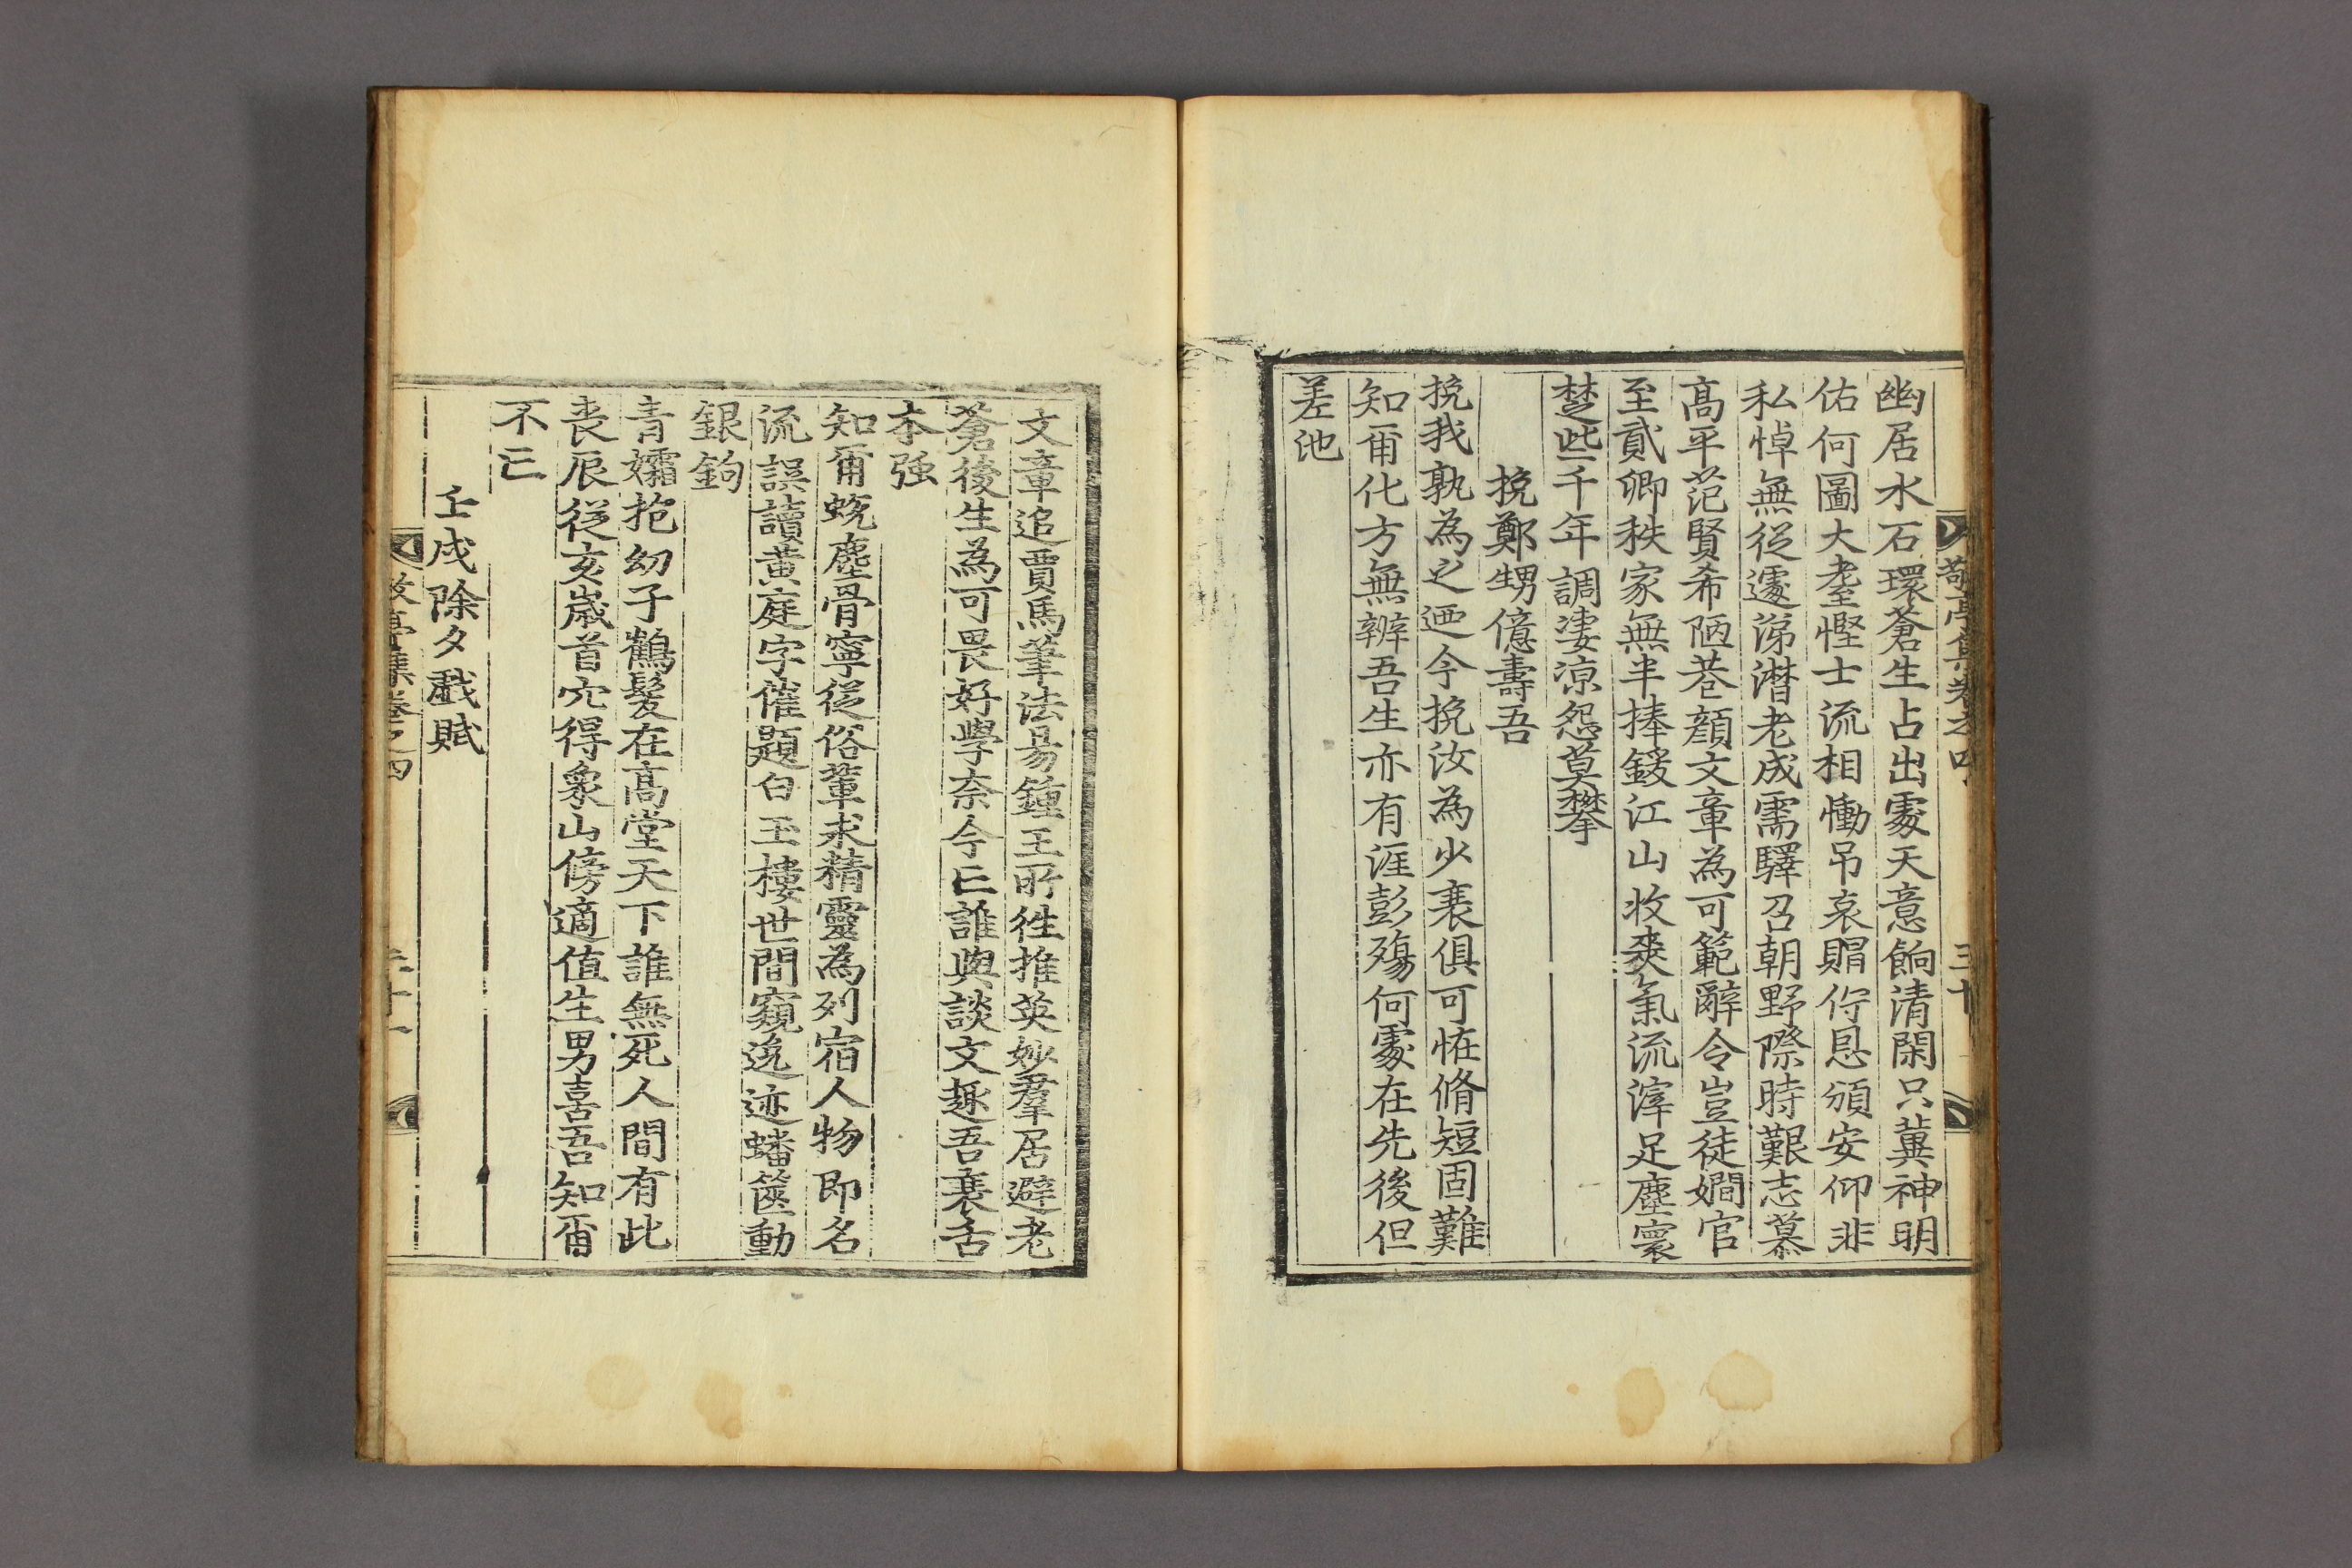 敬亭集卷之四
三十
幽居水石環蒼生占出處天意餉清閑只冀神明
佑何圖大耋慳士流相慟吊哀賵佇恩頒安仰非
私悼無從遽涕潸老成需驛召朝野際時艱志慕
高平范賢希陋巷顔文章為可範辭令豈徒嫺官
至貳卿秩家無半捧鍰江山收爽氣流滓足塵寰
楚些千年調凄凉怨莫攀
挽鄭甥億壽吾
挽我孰為之迺今挽汝為少衰俱可恠脩短固難
知爾化方無辨吾生亦有涯彭殤何處在先後但
差池
文章追賈馬筆法昜鍾王所徃推英妙羣居避老
蒼後生為可畏好學奈今亡誰與談文趣吾衰舌
本强
知爾蛻塵骨寧從俗輩求精靈為列宿人物即名
流誤讀黄庭字催題白玉樓世間窺逸迹蟠篋動
銀鉤
青孀抱幼子鶴髮在高堂天下誰無死人間有此
丧辰從亥歲首穴得象山傍適値生男喜吾知爾
不亡
壬戌除夕戱賦
敬亭集卷之四
三十一